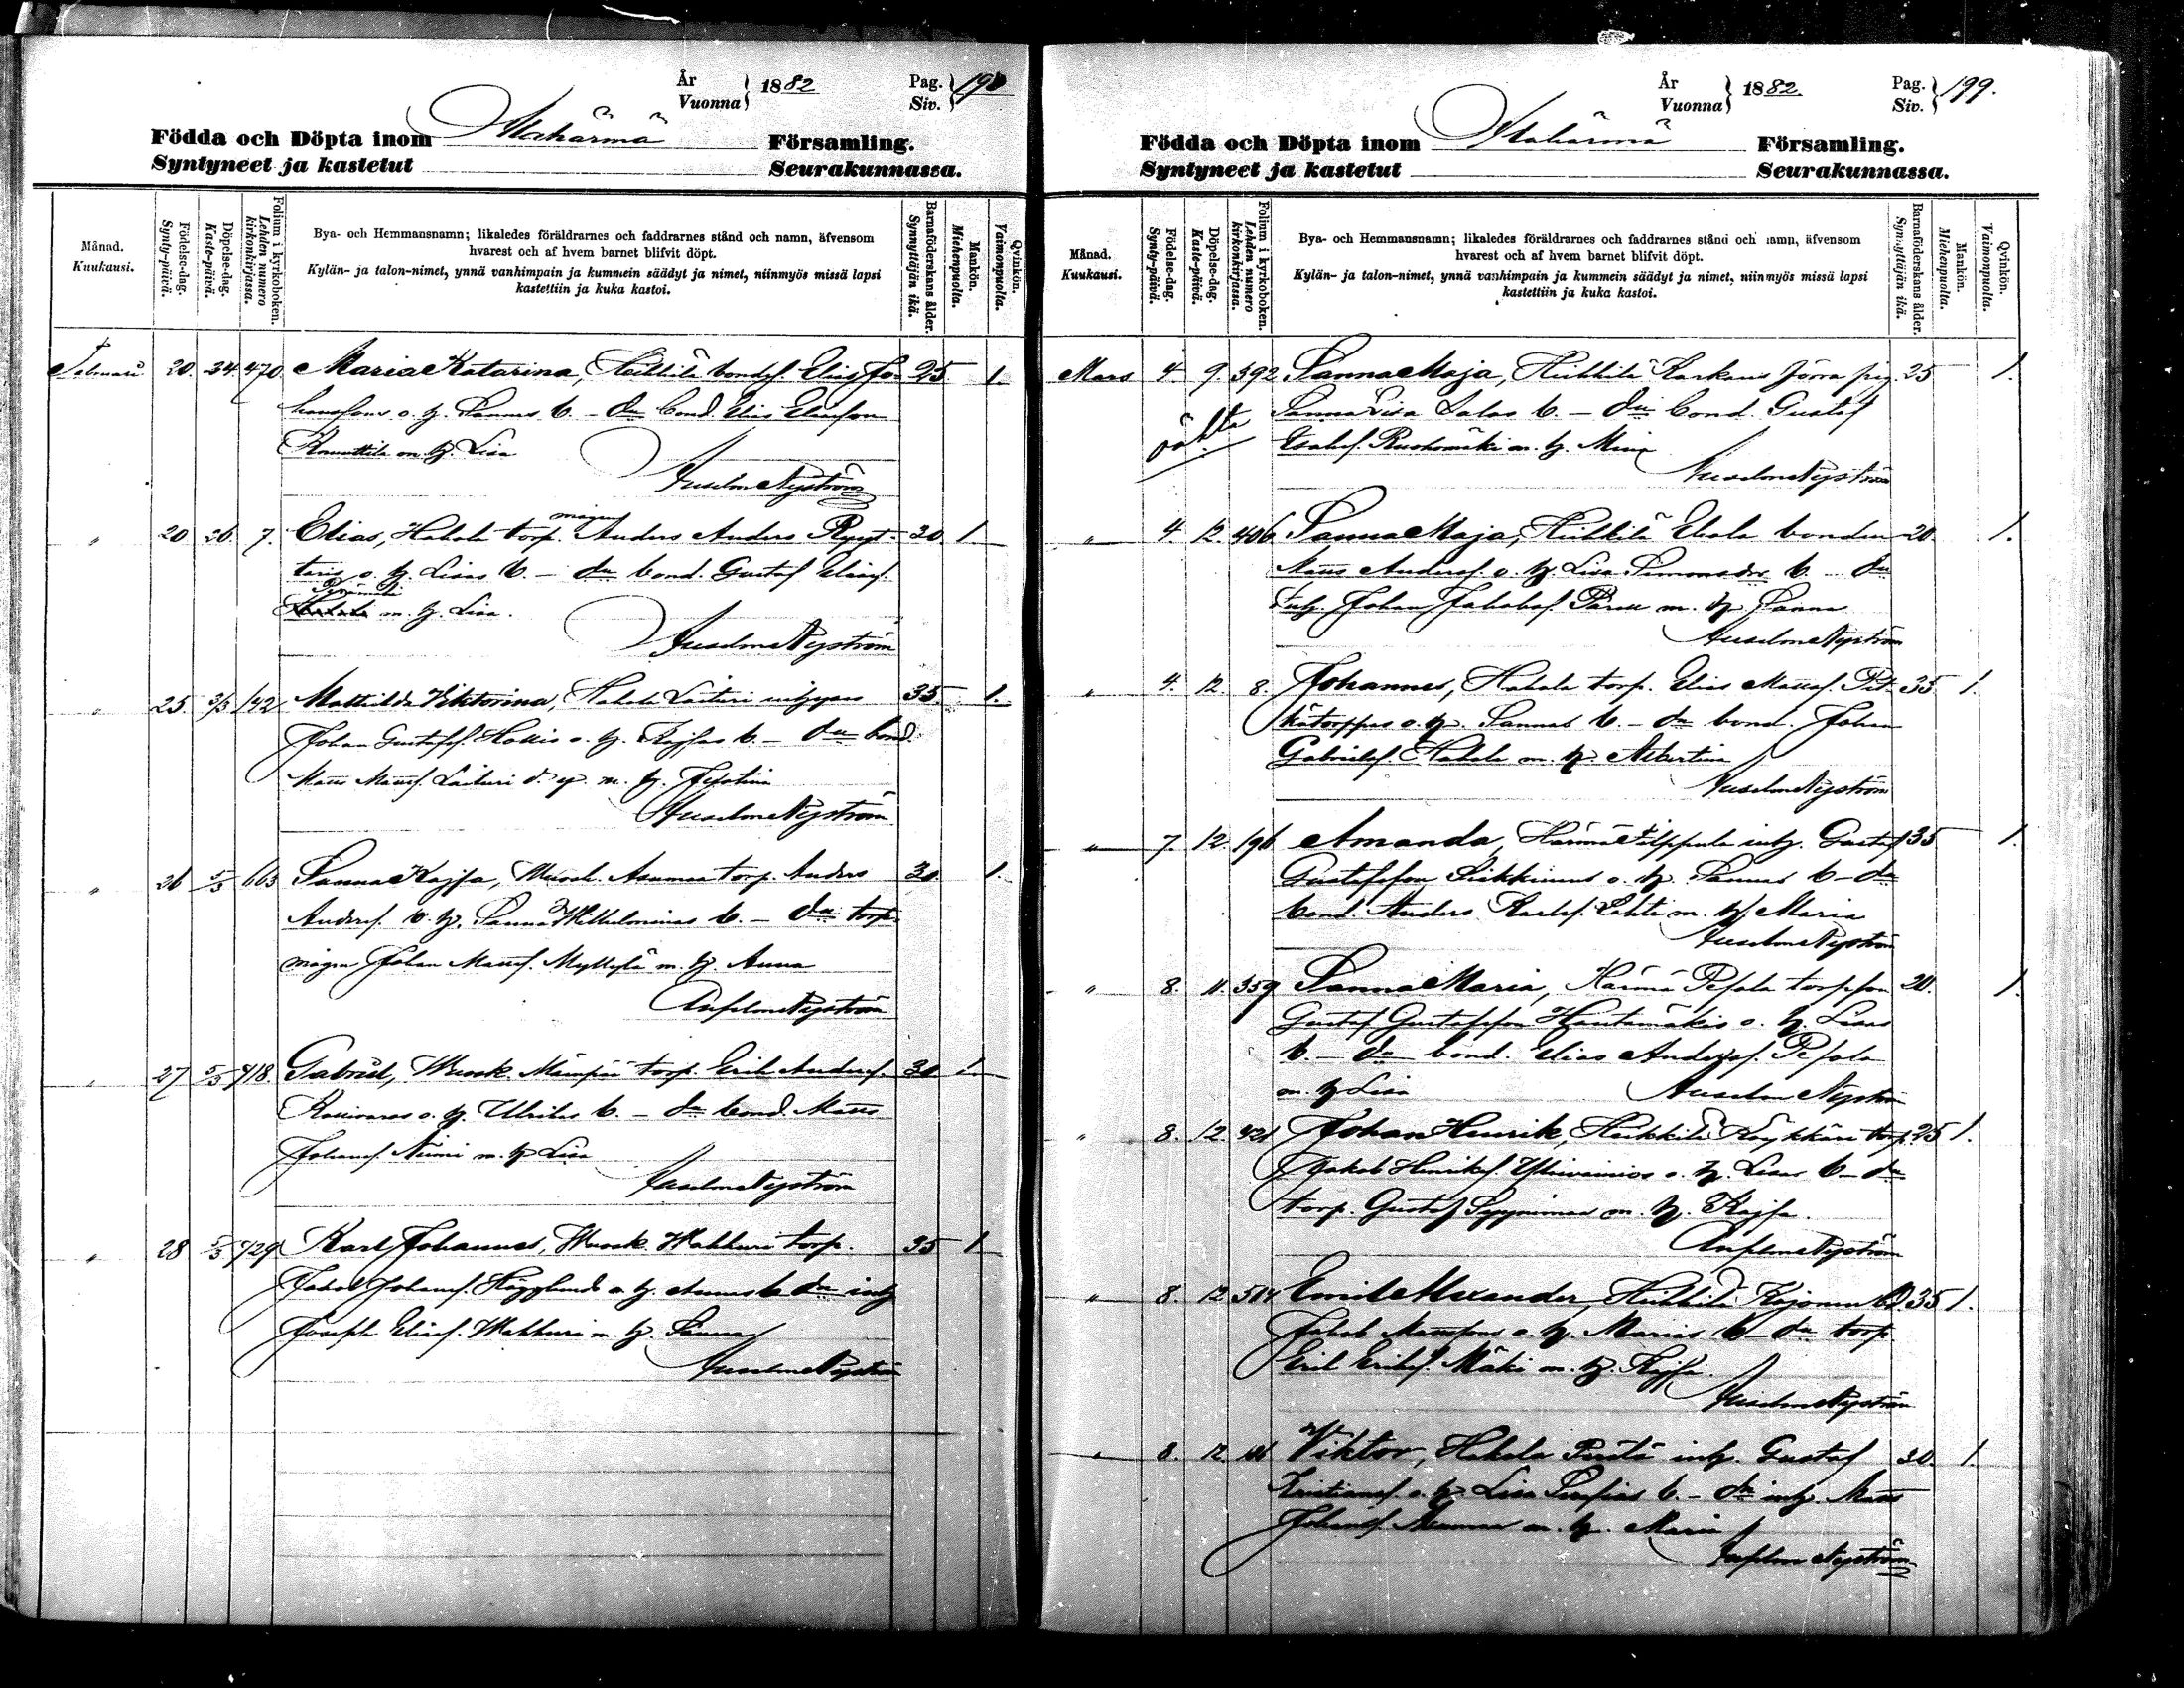 År Vuonna 1882 Pag. Siv. 198
Födda och Döpta inom Alahärmä Församling.
Syntyneet ja kastetut Seurakunnassa.
Månad. Kuukausi.
Födelse-dag. Synty-päivä.
Döpelse-dag. Kaste-päivä.
Folium i kyrkoboken. Lehden numero kirkonkirjassa.
Bya- och Hemmansnamn; likaledes föräldrarnes och faddrarnes stånd och namn, äfvensom
hvarest och af hvem barnet blifvit döpt.
Kylän- ja talon-nimet, ynnä vanhimpain ja kummein säädyt ja nimet, niinmyös missä lapsi
kastettiin ja kuka kastoi.
Barnaföderskans ålder. Synnyttäjän ikä.
Mankön. Miehenpuolta.
Qvinkön. Vaimonpuolta.
Februari 20. 24. 470. Maria Katarina, Heikkilä bondes. Elias Jo- 25 1.
hanssons o. h. Sannas b. – du bond. Elias Eliasson
Knuuttila m. h. Lisa
Anselm Nyström
" 20 26. 7. Elias, Hakola torp. mågen Anders Anders Ryyt- 30. 1
taris o. h. Lisas b. – du bond. Gustaf Eliass.
m. h. Lisa.
Anselm Nyström
" 25. 2/3 142 Mathilda Viktorina, Hakola Laituri inhyses 35. 1.
Johan Gustafss. o. h. Kajsas b. – du bond.
Matts Mattss. Laituri d. y. m. h. Justina
Anselm Nyström
" 26 5/3 603 Sanna Kajsa, Wuosk. Asumaa torp. Anders 30. 1.
Anderss. o. h. Sanna Wilhelminas b. – du torp.
mågen Johan Mattss. Myllylä m. h. Anna
Anselm Nyström
" 27 5/3 718. Gabriel, Wuosk. Mämpää torp. Erik Anderss. 30. 1
o. h. Ulrikas b. – du bond. Matts
Johanss. Niemi m. h. Lisa
Anselm Nyström
" 28 5/3 729 Karl Johannes, Wuosk. Wakkuri torp. 35 1
Jakob Johanss. Högglunds o. h. Annas b. du inh
Joseph Eliass. Wakkuri m. h. Sanna
Anselm Nyström
År Vuonna 1882. Pag. Siv. 199.
Födda och Döpta inom Alahärmä Församling.
Syntyneet ja kastetut Seurakunnassa.
Månad. Kuukausi.
Födelse-dag. Synty-päivä.
Döpelse-dag. Kaste-päivä.
Folium i kyrkoboken. Lehden numero kirkonkirjassa.
Bya- och Hemmansnamn; likaledes föräldrarnes och faddrarnes stånd och namn, äfvensom
hvarest och af hvem barnet blifvit döpt.
Kylän- ja talon-nimet, ynnä vanhimpain ja kummein säädyt ja nimet, niinmyös missä lapsi
kastettiin ja kuka kastoi.
Barnaföderskans ålder. Synnyttäjän ikä.
Mankön. Miehenpuolta.
Qvinkön. Vaimonpuolta.
Mars 4. 9. 392 Sanna Maja, Heikkilä Karkaus Jörra pig. 25 1.
oäkta Sanna Lisa Lalas b. – du bond. Gustaf
Esaiass. Ruohomäki m. h. Mina
Anselm Nyström
" 4. 12. 406 Sanna Maja, Heikkilä Ekola bonden 20. 1.
Matts Anderss. o. h. Lisa Simonsdrs b. – du
Inh. Johan Jakobss. m. h. Sanna
Anselm Nyström
" 4. 12. 8. Johannes, Hakola torp. Elias Mattss. Pit- 35 1.
kätorppas o. h. Sannas b. – du bond. Johan
Gabrielss. Hakola m. h. Albertina
Anselm Nyström
" 7. 12. 196 Amanda, Härmä Filppula inh. Gustaf 35 1.
Gustafsson o. h. Sannas b – du
bond. Anders Karlss. Lahti m. h. Maria
Anselm Nyström
" 8. 11. 359 Sanna Maria, Härmä Pesola torpson 20. 1.
Gustaf Gustafsson Hautamäkis o. h. Lisas
b. – du bond. Elias Anderss. Pesola
m. h Lisa Anselm Nyström
" 8. 12. 421 Johan Henrik, Heikkilä Köykkäri torp. 25 1.
Jakob Henrikss. Yliviinios o. h. Lisas b – du
torp. Gustaf m. h. Kajsa.
Anselm Nyström
" 8. 12 514 Emil Alexander, Heikkilä Kojonen 35 1.
Jakob Manssons o. h. Marias b – du torp.
Erik Erikss. Mäki m. h. Kajsa.
Anselm Nyström
" 8. 12. Viktor, Hakola Perälä inh. Gustaf 30. 1.
Kristianss. o. h. Lisa Sofias b. – du inh. Matts
Johanss. m. h. Maria
Anselm Nyström